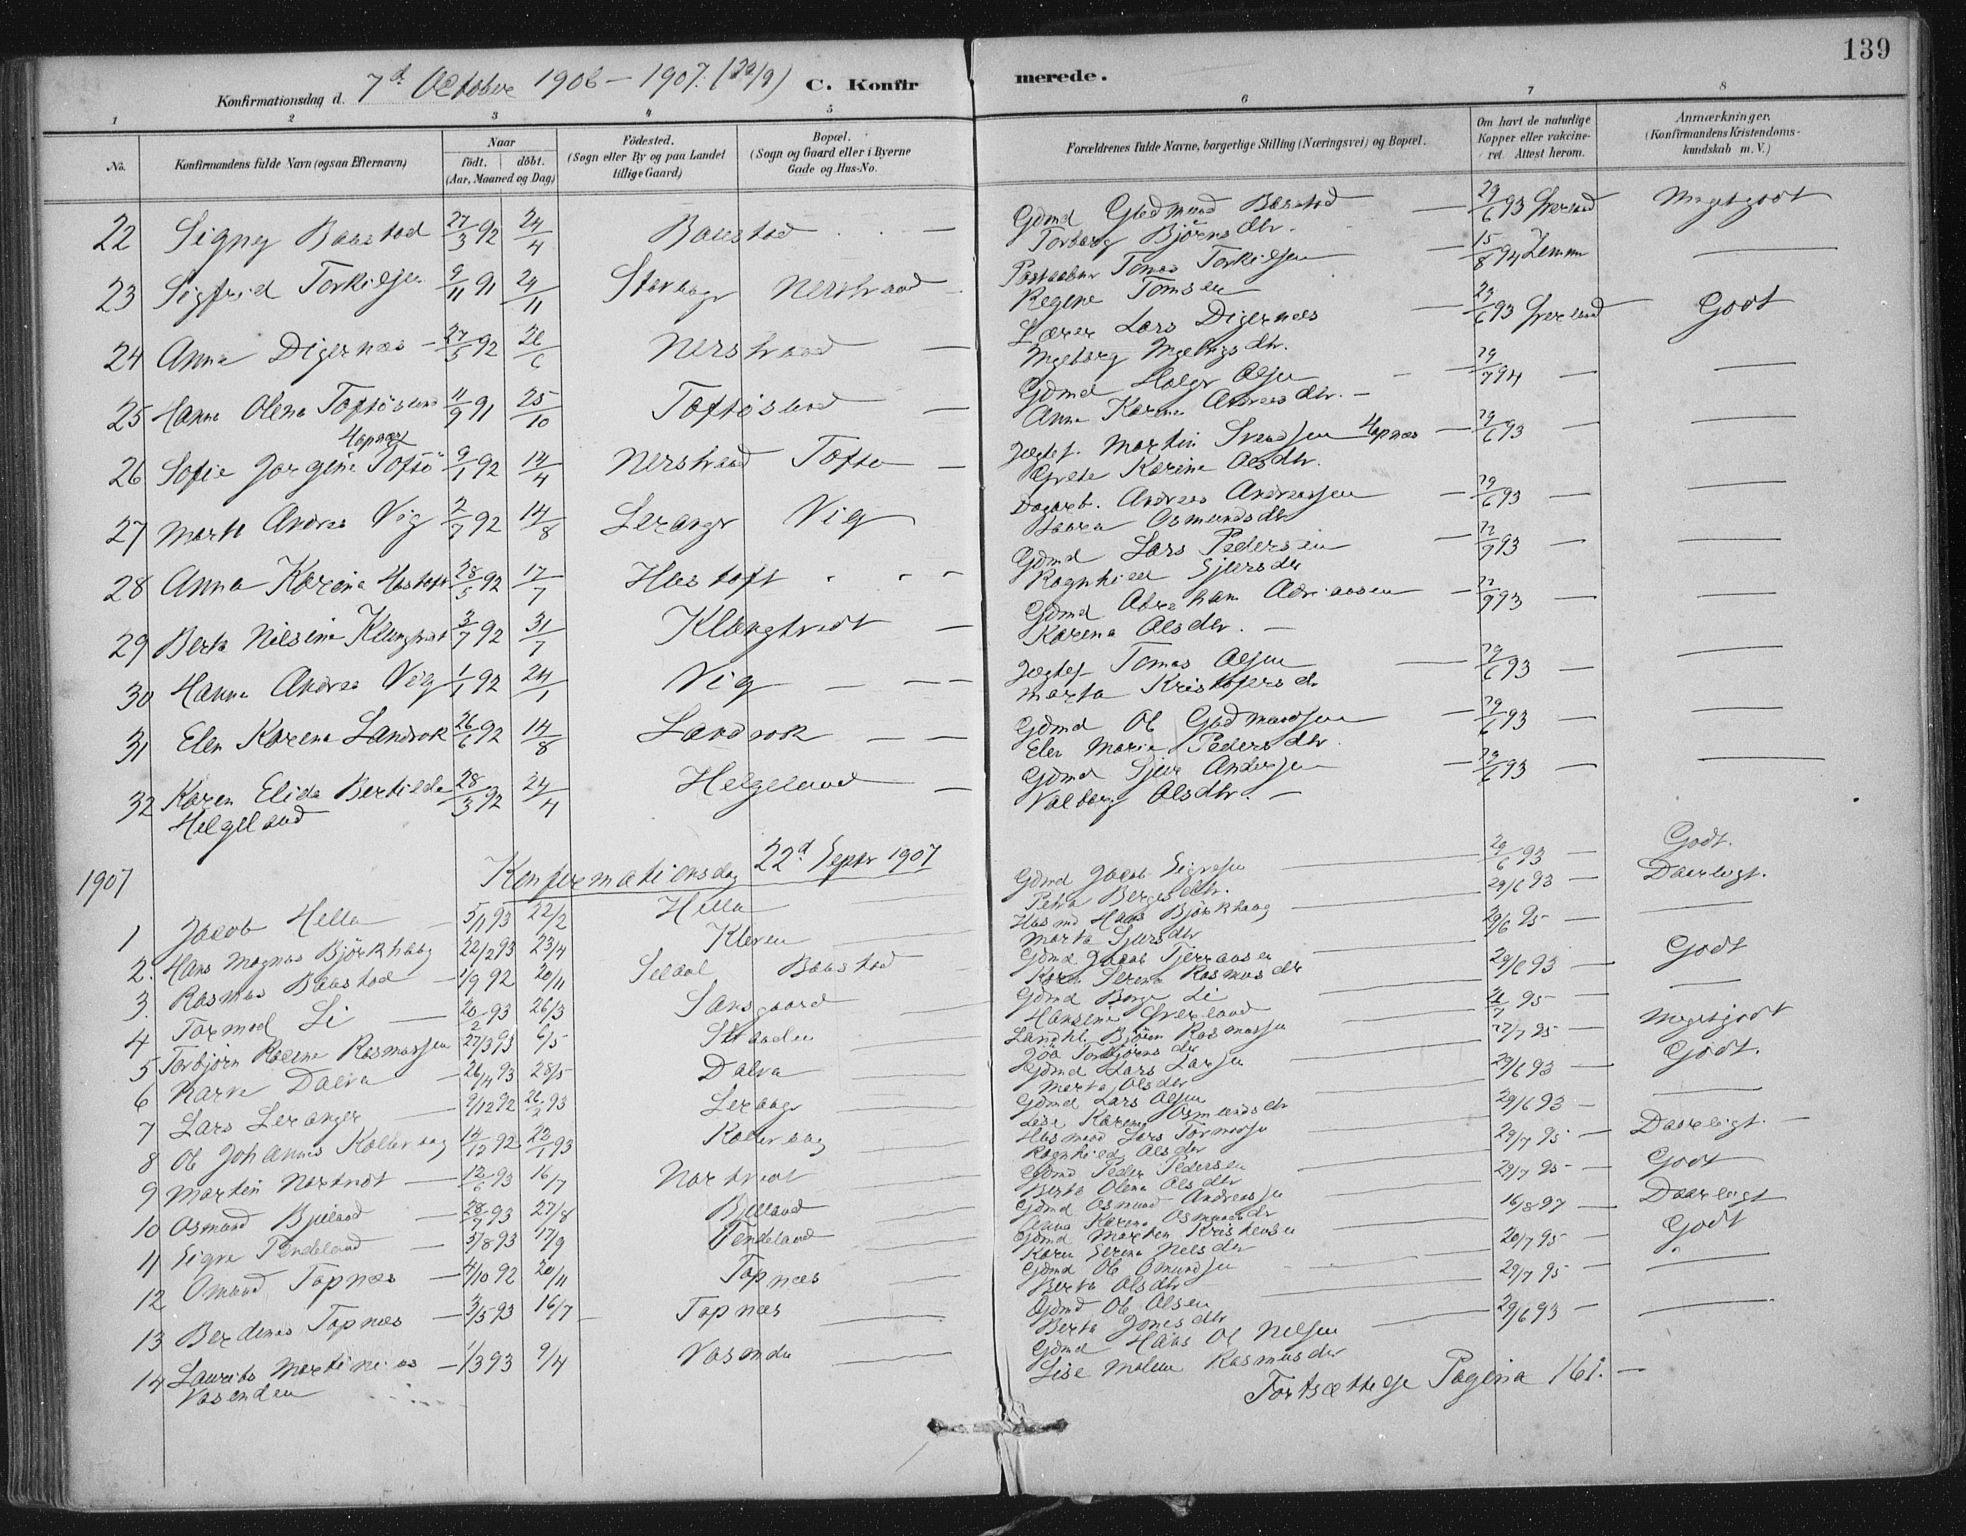 139
Konfirmationsdag d. 7d October 1906 – 1907. (22/9) C. Konfirmerede.
1 2 3 4 5 6 7 8
No. Konfirmandens fulde Navn (ogsaa Efternavn) Naar födt. döbt. (Aar, Maaned og Dag) Födested. (Sogn eller By og paa Landet tillige Gaard) Bopæl. (Sogn og Gaard eller i Byerne Gade og Hus-No. Forældrenes fulde Navne, borgerlige Stilling (Næringsvei) og Bopæl. Om havt de naturlige Kopper eller vakcineret. Attest herom. Anmærkninger. (Konfirmandens Kristendomskundskab m. V.)
22 Signy Baustad 27/3 92 24/4 Baustad — Gdmd Gudmund Baustad — 29/6 93 Meget godt
Torborg Björnsdtr.
23 Sigfrid Torkilsen 9/11 91 24/11 Nerstrand Tomas Torkilsen — 15/8 94 —
Regine Tomsen
24 Anna Digernæs 27/5 92 26/6 Nerstrand — Lærer Lars Digernæs — 29/6 93 Godt
Ingeborg
25 Hanna Olena Toftöslund 11/9 91 25/10 Toftöslund — Gdmd Holger Olsen — 29/7 94 — —
Anna Karina Andreasdtr. —
Hapnes
26 Sofie Jorgine Toftö 9/1 92 14/4 Nerstrand Toftö — Martin Svendsen Hapnes — 29/6 93 —
Grete Karine Olsdtr.
27 Marta Andrea Vig 2/7 92 14/8 Leranger Vig Dagarb. Andreas Andreassen — 29/6 93 — —
Laura Osmundsdtr
28 Anna Karina Hastoft 28/5 92 17/7 Hastoft Gdmd Lars Pedersen — 93 — —
Ragnhild Sjursdtr
29 Berta Nilsine Klungtvedt 3/7 92 31/7 Klungtvedt — Gdmd Abraham Adriansen — 93 — —
Karena Olsdtr. —
30 Hanna Andrea Vig 1/1 92 24/1 Vig — Tomas Olsen — 29/6 93 — —
Marta Kristofersdtr
31 Elen Karena Landrok 26/6 92 14/8 Landrok — Gdmd Ole Gudmundsen — 29/6 93 — —
Elen Maria Pedersdtr.
32 Karen Elida Bertilda 28/3 92 24/4 Helgeland — Gdmd Sjur Andersen — 29/6 93 — —
Helgeland Valborg Olsdtr. —
1907 Konfirmationsdag 22d Septr 1907
1 Jacob Hella — 5/1 93 22/2 Hella — Gdmd Jacob Sigvesen — 29/6 93 — Godt.
Petra Bergesdtr.
2. Hans Magnus Björkhaug 22/2 93 23/4 Kleven — Husmd Hans Björkhaug — 29/6 93 — Daarligt.
Marta Sjursdtr
3. Rasmus Baustad 1/9 92 20/11 Baustad — Gdmd Jacob — 29/6 95 — —
Karen Serena Rasmusdtr
4 Tormod Li — 20/2 93 26/3 Sansgaard — Gdmd Börge Li — 29/6 93 — Godt
5 Torbjörn Rasmussen 27/3 93 6/5 Björn Rasmussen — 95 — —
Torbjörnsdtr
6 Dalva — 26/4 93 28/5 Dalva — Gdmd Lars Larsen — 22/7 95 — Megetgodt
Marta Olsdtr
7 Lars Leranger — 9/12 92 26/1 93 Leranger — Gdmd Lars Olsen — 29/6 93 — Godt.
Lise Karena Osmundsdtr
8 Ole Johannes Kolbeinshaug 14/12 92 22/1 93 — Husmand Lars Tormodsen — 29/6 93 — —
Ragnhild Olsdtr
9 Martin Nortvedt — 12/6 93 16/7 Nortvedt — Gdmd Peder Pedersen — 29/7 95 — Daarligt. —
Berta Olena Olsdtr
10 Osmund Bjelland 28/7 93 27/8 Bjelland — Gdmd Osmund Andreassen — 29/7 95 — Godt
Anna Karena Osmundsdtr
11 Sigve Tendeland — 5/8 93 17/9 Tendeland — Gdmd Morten Kristensen — 16/8 97 — Daarligt
Karen Serina Nilsdtr
12 Omund Topnæs — 4/10 92 20/11 Topnæs — Gdmd Ole Omundsen — 20/7 95 — Godt
Berta Olsdtr
13 Berdines Topnæs — 3/5 93 16/7 — Topnæs — Gdmd Ole Olsen — 29/7 95 — —
Berta Jonesdtr
14 Laurits Martinius — 1/3 93 9/4 Vasenden — Gdmd Hans Ol Nilsen — 29/6 93 — —
Vasenden Lise Malene Rasmusdtr
Fortsættelse Pagina 161. —